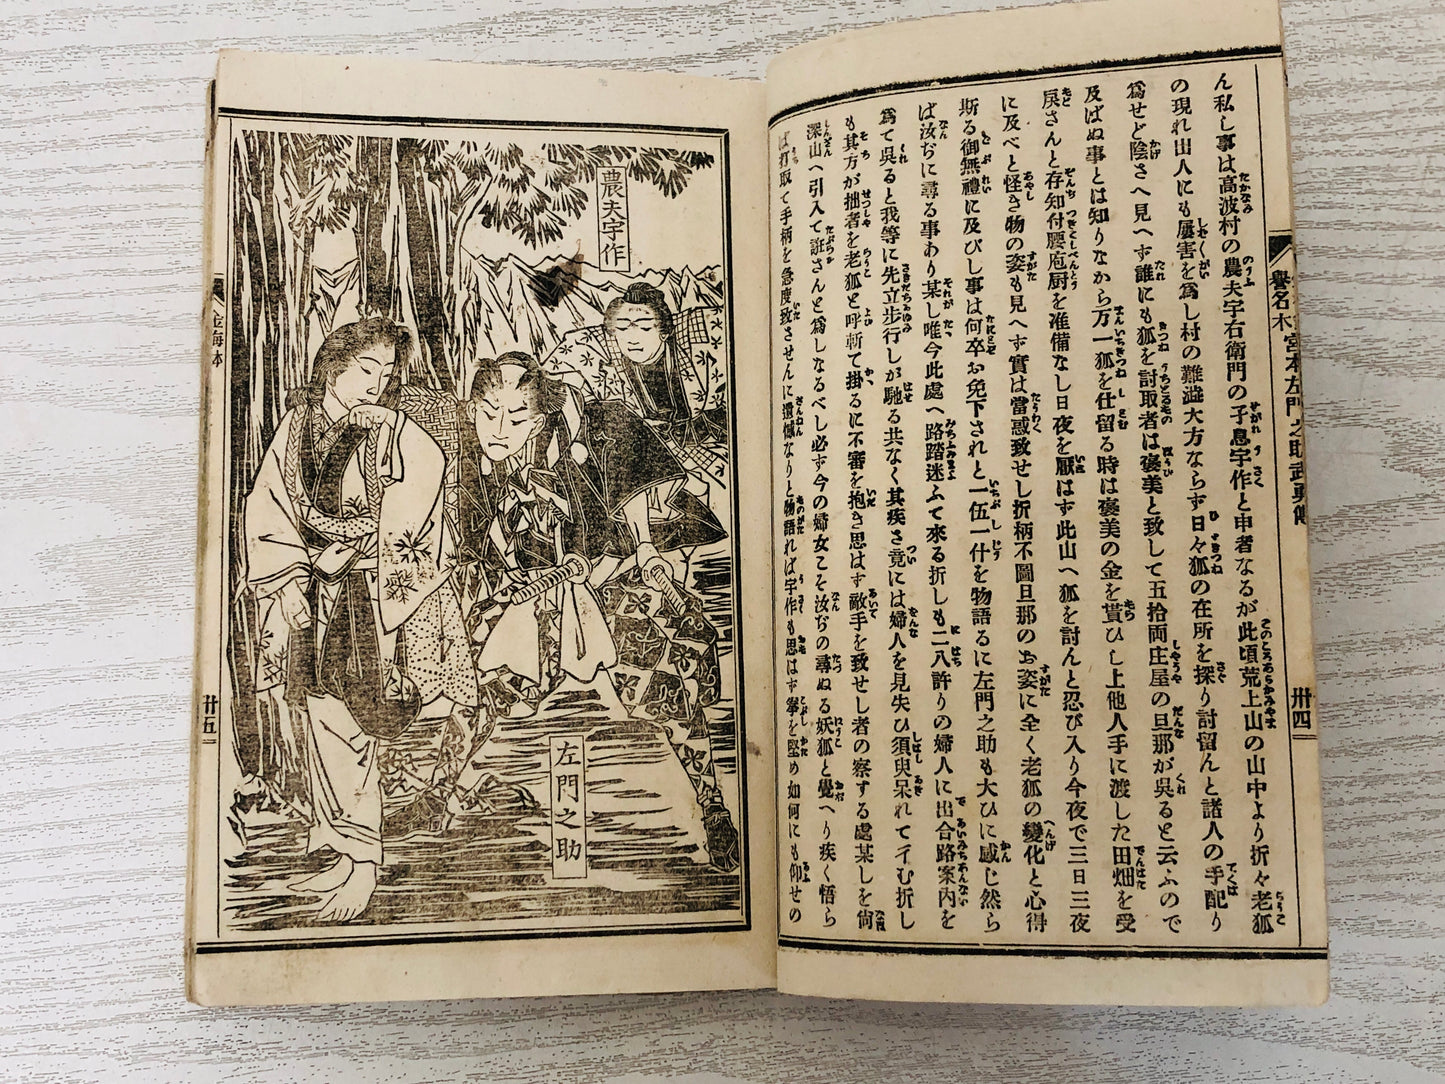 譽名木 宮本左門之助武勇傳
卅四
ん私し事は高波村の農夫宇右衛門の子息宇作と申者なるが此頃荒上山の山中より折々老狐
の現れ出人にも屡害を爲し村の難澁大方ならず日々狐の在所を探り討留んと諸人の手配り
爲せど陰さへ見へず誰にも狐を討取者は褒美と致して五拾両庄屋の旦那が呉ると云ふので
及ばぬ事とは知りなから万一狐を仕留る時は褒美の金を貰ひし上他人手に渡した田畑を受
戻さんと存知付腰庖厨を准備なし日夜を厭はず此山へ狐を討んと忍び入り今夜で三日三夜
に及べと怪き物の姿も見へず實は當惑致せし折柄不圖旦那のお姿に全く老狐の變化と心得
斯る御無禮に及びし事は何卒お免下されと一伍一什を物語るに左門之助も大ひに感じ然ら
ば汝ぢに尋る事あり某し唯今此處へ路踏迷ふて來る折しも二八許りの婦人に出合路案内を
爲て呉ると我等に先立歩行しが馳る共なく其疾さ竟には婦人を見失ひ須臾呆れて彳む折し
も其方が拙者を老狐と呼斬て掛るに不審を抱き思はず敵手を致せし者の察する處某しを尙
深山へ引入て誑さんと爲しなるべし必ず今の婦女こそ汝ぢの尋ぬる妖狐と覺へり疾く悟ら
ば打取て手柄を急度致させんに遺憾なりと物語れば宇作も思はず拳を堅め如何にも仰せの
農夫宇作
左門之助
卅五